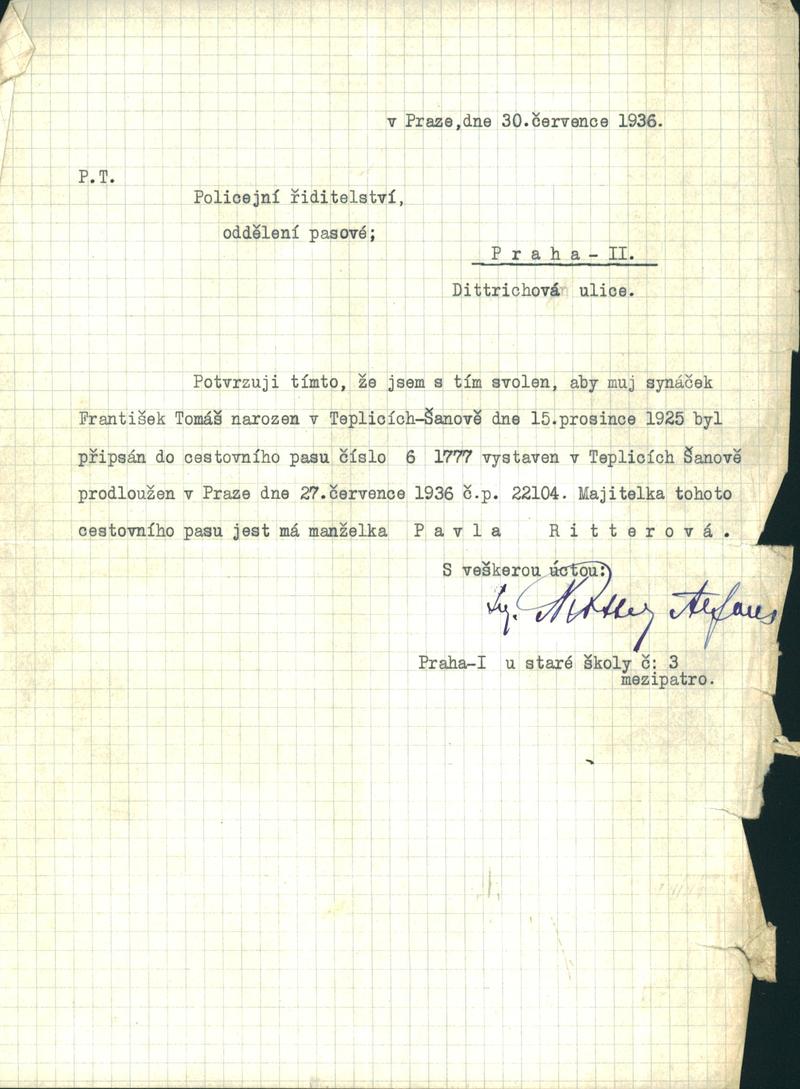 v Praze,dne 30.července 1936.
P.T.
Policejní řiditelství,
oddělení pasové;
P r a h a - II.
Dittrichová ulice.
Potvrzuji tímto, že jsem s tím svolen, aby muj synáček
František Tomáš narozen v Teplicích-Šanově dne 15.prosince 1925 byl
připsán do cestovního pasu číslo 6 1777 vystaven v Teplicích Šanově
prodloužen v Praze dne 27.července 1936 č.p. 22104. Majitelka tohoto
cestovního pasu jest má manželka P a v l a R i t t e r o v á .
S veškerou úctou:
Ing.
Praha-I u staré školy č: 3
mezipatro.